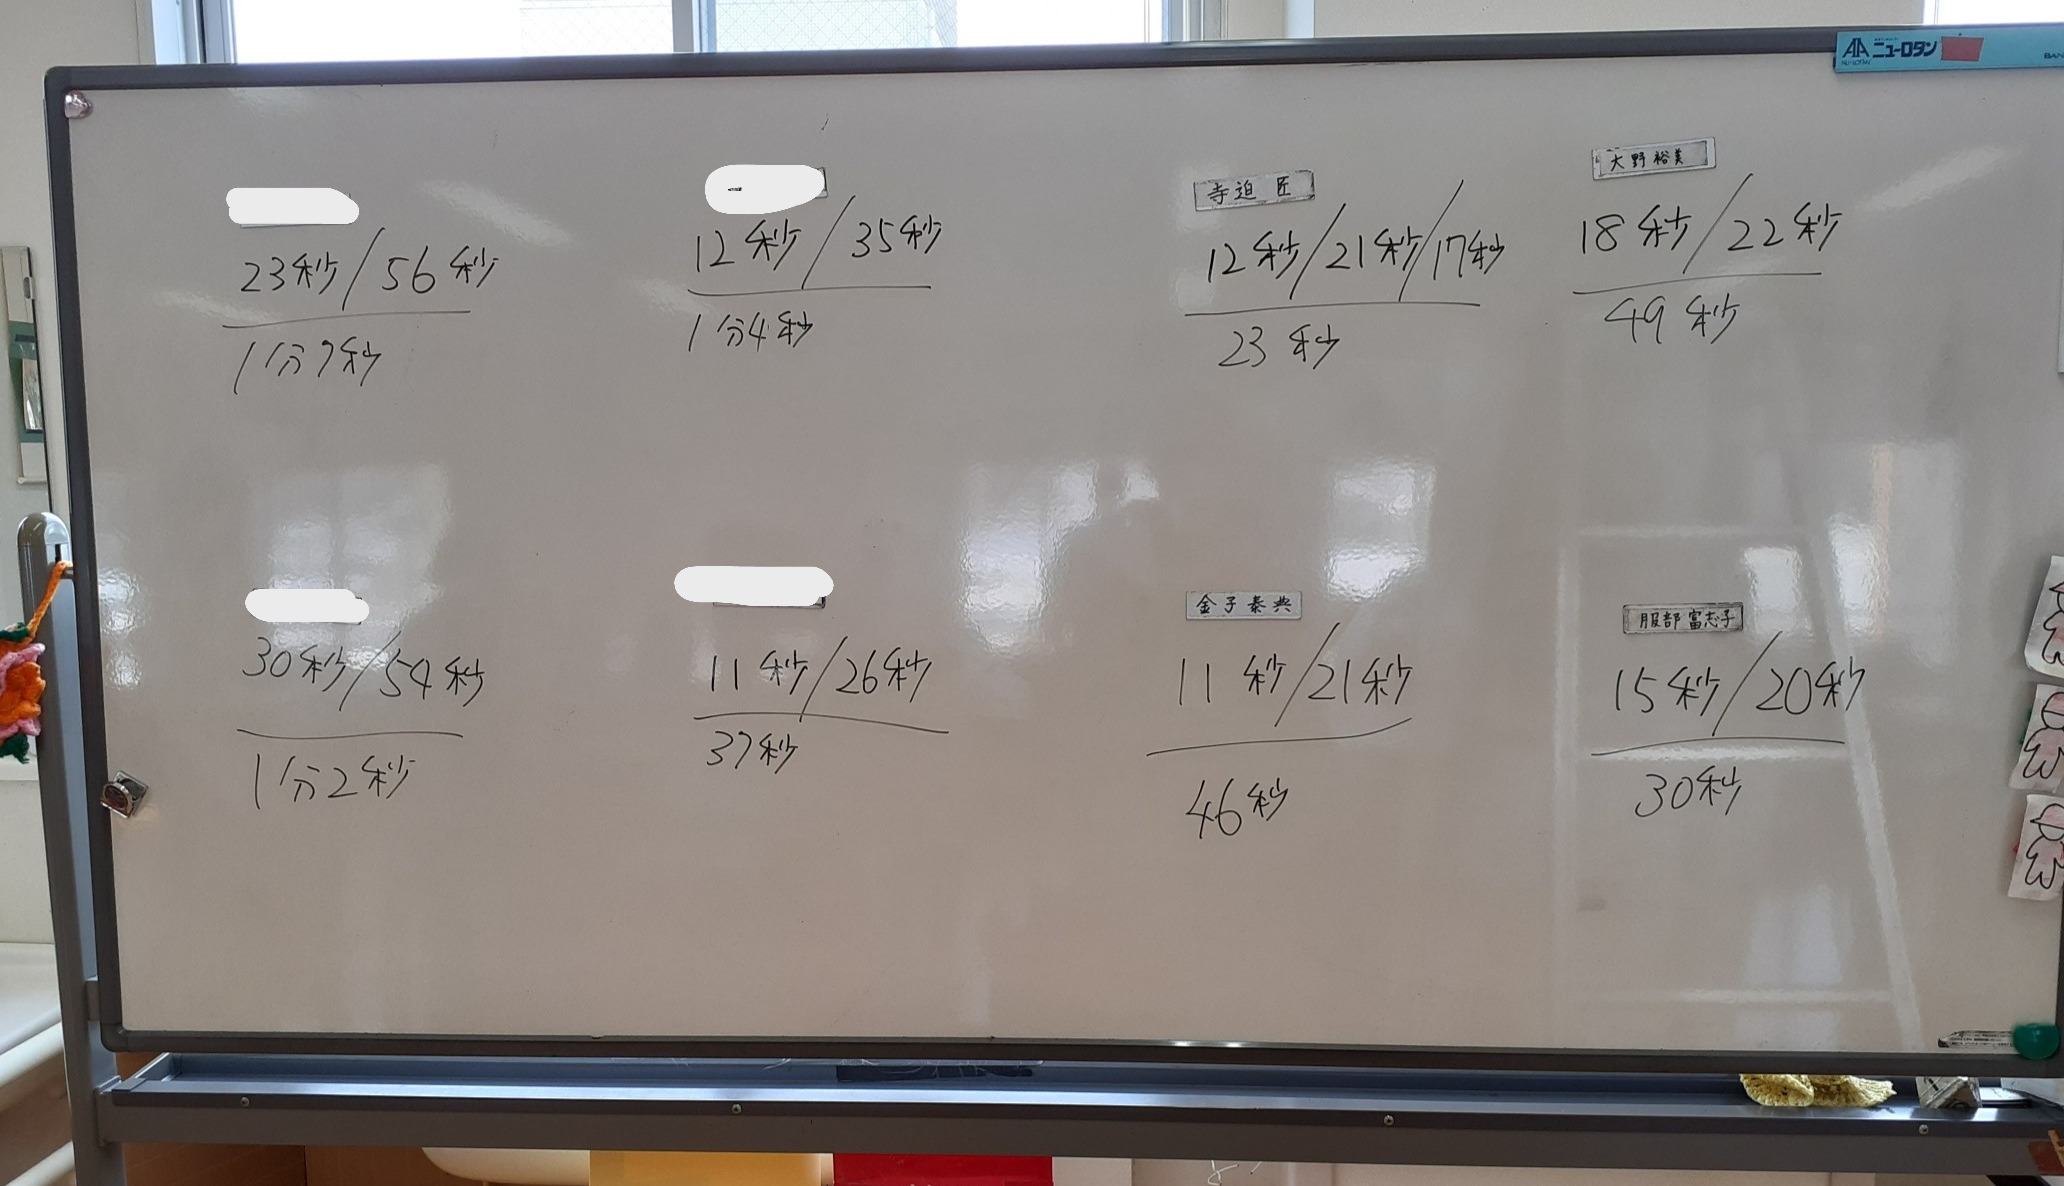 ニューロタン
寺迫 匠
大野裕美
23秒/56秒
1分7秒
12秒/35秒
1分4秒
12秒/21秒/17秒
23秒
18秒/22秒
49秒
金子泰典
服部富志子
30秒/54秒
1分2秒
11秒/26秒
37秒
11秒/21秒
46秒
15秒/20秒
30秒